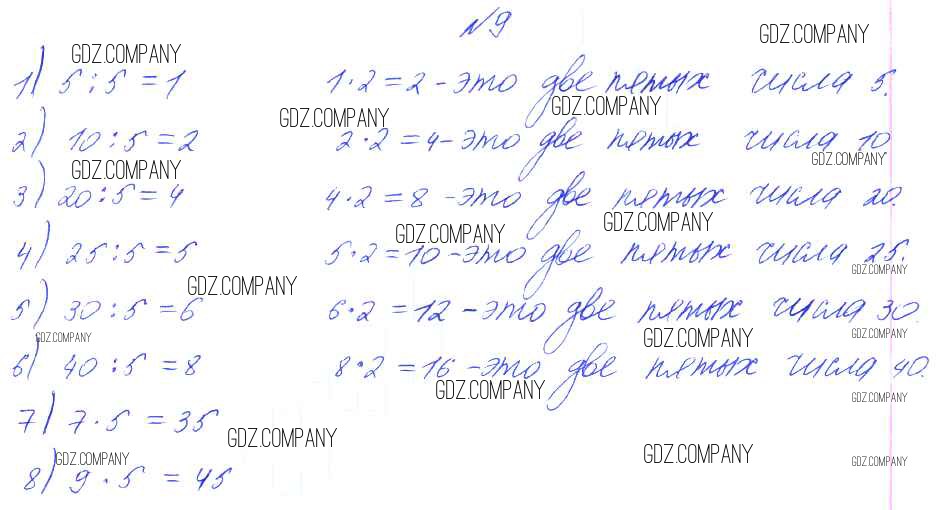 №9
GDZ.COMPANY
GDZ.COMPANY
1) 5 : 5 = 1 1 · 2 = 2 - это две пятых числа 5.
GDZ.COMPANY
GDZ.COMPANY
2) 10 : 5 = 2 2 · 2 = 4 - это две пятых числа 10
GDZ.COMPANY
GDZ.COMPANY
3) 20 : 5 = 4 4 · 2 = 8 - это две пятых числа 20.
GDZ.COMPANY
GDZ.COMPANY
4) 25 : 5 = 5 5 · 2 = 10 - это две пятых числа 25.
GDZ.COMPANY
GDZ.COMPANY
5) 30 : 5 = 6 6 · 2 = 12 - это две пятых числа 30.
GDZ.COMPANY
GDZ.COMPANY
GDZ.COMPANY
6) 40 : 5 = 8 8 · 2 = 16 - это две пятых числа 40.
GDZ.COMPANY
GDZ.COMPANY
7) 7 · 5 = 35
GDZ.COMPANY
GDZ.COMPANY
GDZ.COMPANY
GDZ.COMPANY
8) 9 · 5 = 45